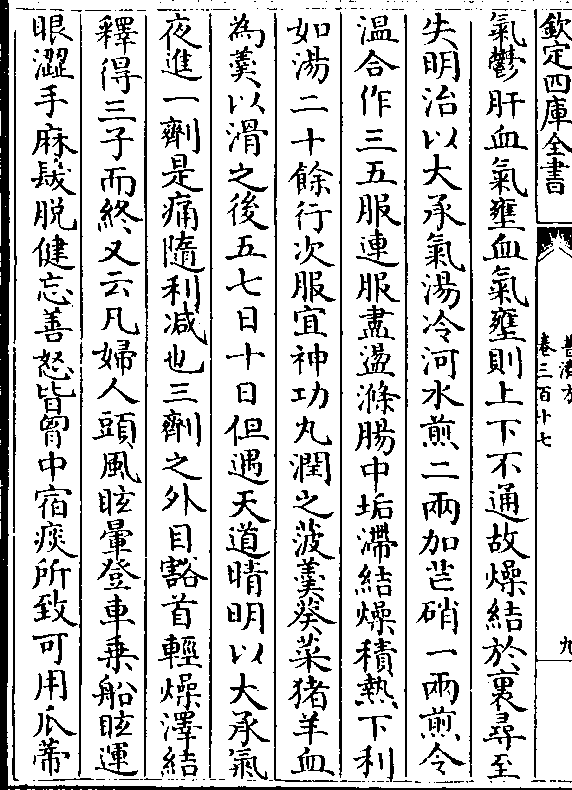 欽定四庫全書
普濟方
卷三百十七
九
氣鬱肝血氣壅血氣壅則上下不通故燥結於裏尋至
失明治以大承氣湯冷河水煎二兩加芒硝一兩煎令
温合作三五服連服盡盪滌腸中垢滯結燥積熱下利
如湯二十餘行次服宜神功丸潤之菠羹葵菜猪羊血
為羹以滑之後五七日十日但遇天道晴明以大承氣
夜進一劑是痛隨利减也三劑之外目豁首輕燥澤結
釋得三子而終又云凡婦人頭風眩暈登車乗船眩運
眼澀手麻髮脱健忘善怒皆胷中宿痰所致可用瓜蒂